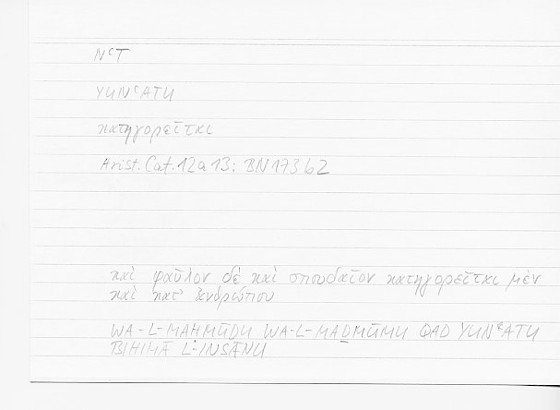 NʿT
YUNʿATU
κατηγορεῖται
Arist. Cat. 12a13: BN173b2
καὶ φαῦλον δὲ καὶ σπουδαῖον κατηγορεῖται μὲν
καὶ κατ' ἀνθρώπου
WA-L-MAḤMŪDU WA-L-MAḎMŪMU QAD YUNʿATU
BIHIMĀ L-INSĀNU